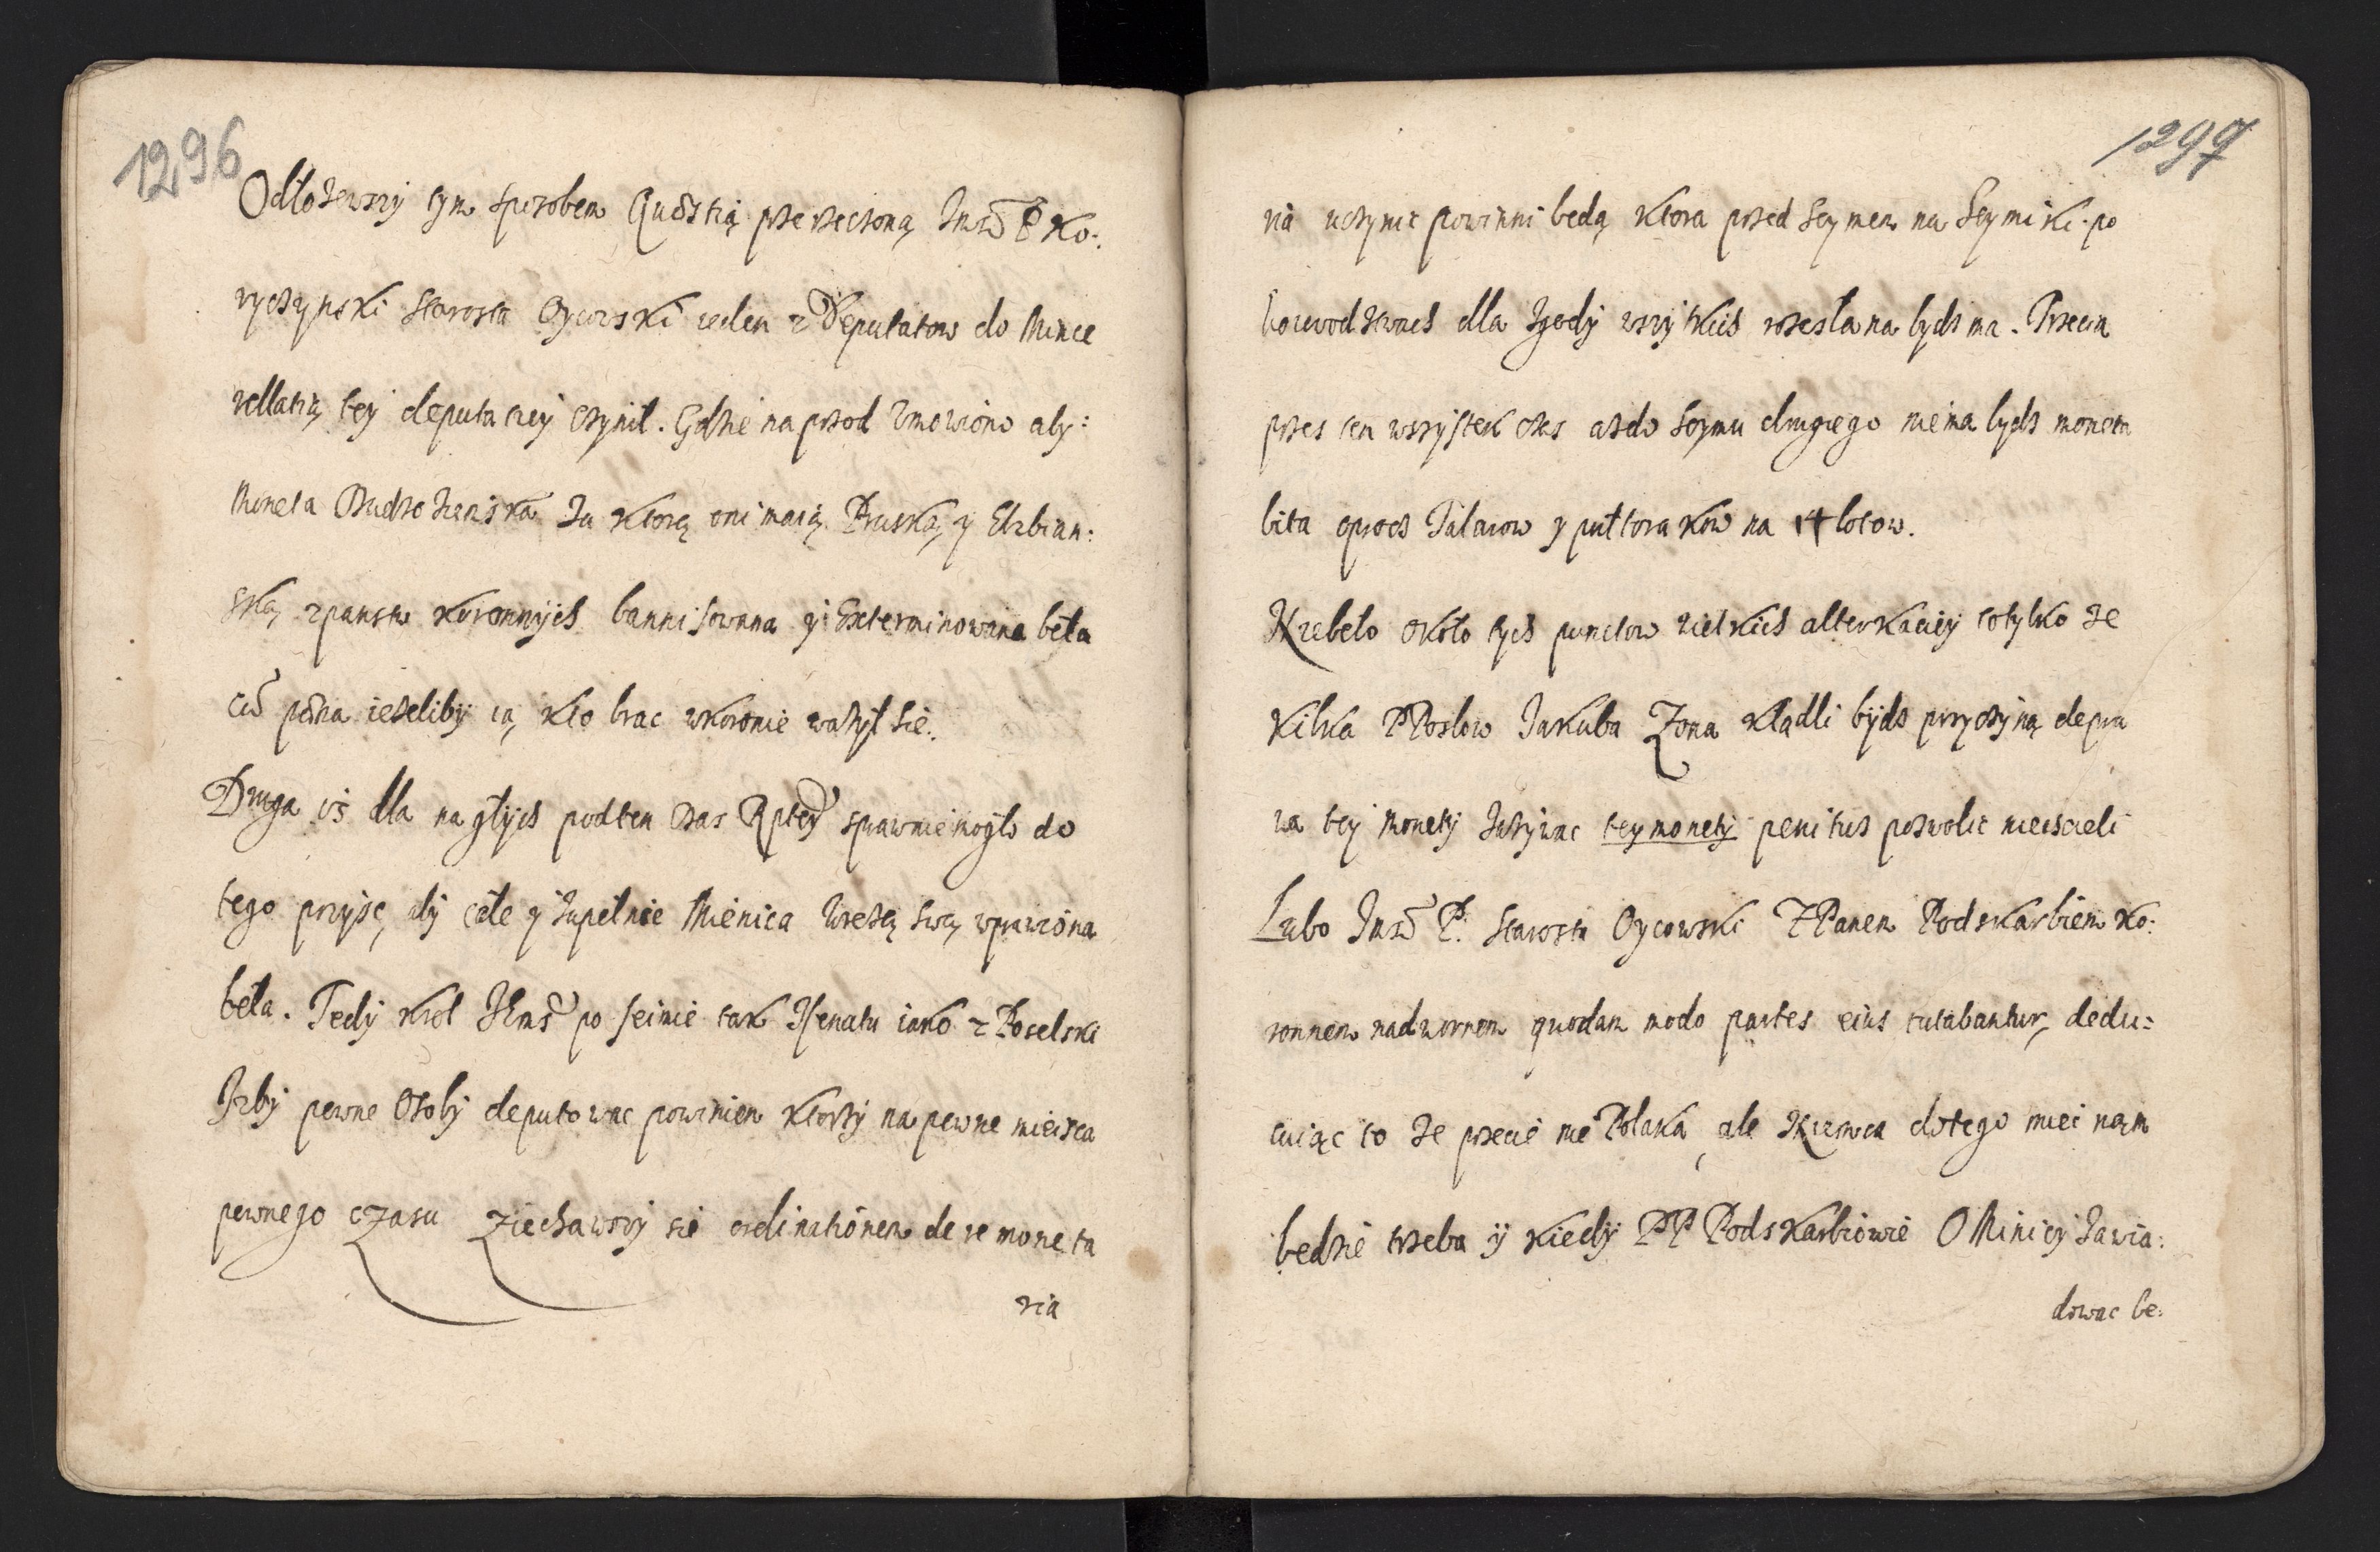 1296
Odłozewszy tym sposobem Quæstią przerzeczoną Jmsć P Ko:
ryczynski Starosta Oycowski ieden z Deputatow do Mince
rellatią tey deputaciey czynił. Gdzie naprzod zmowiono aby:
Moneta Cudzoziemska za ktorą oni maią Pruską, y Elbian:
ską z panstw koronnych bannisowana y Exterminowana beła
cū pæna iezeliby ią kto brac w koronie wazył sie.
Druga iż dla nagłych podten czas Rptey spraw niemogło do
tego przyjsc, aby cale y zupełnie Mienica w rezą swą wprawiona
beła. Tedy krol JKms po seimie tak z senatu iako z Poselski
Izby pewne Osoby deputowac powinien ktorzy na pewne mieisca
pewnego czasu ziechawszy sie ordinationem de re moneta
ria
1297
ria uczynic powinni będą ktora przed Seymem na Seymiki po
woiewodztwach dla zgody wszytkich rozesłana bydz ma. Przecie
przez ten wszystek czas azdo Seymu drugiego niema bydz moneta
bita oprocz Talarow y puttorakow na 14 lotow.
Nie beło około tych punctow wielkich altercaciey totylko ze
kilka PPosłow Jakuba Zona kładli bydz przyczyną depra
va tey monety zazywac tey monety penitus pozwolic niechcieli
Lubo Jmsć P. Starosta Oycowski z Panem Podskarbiem Ko:
ronnem nadwornem quodam modo partes eius tutabantur, dedu:
cuiąc to ze przecie nie Polaka, ale Niemca dotego miec nam
bedzie trzeba y kiedy PP Podskarbiowie O Minicy zawia:
dowac be: